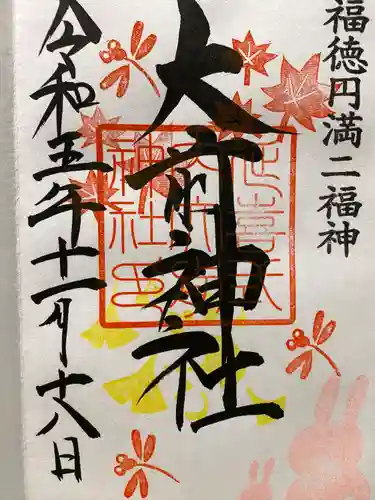 福徳円満二福神
大前神社
令和五年十一月十八日